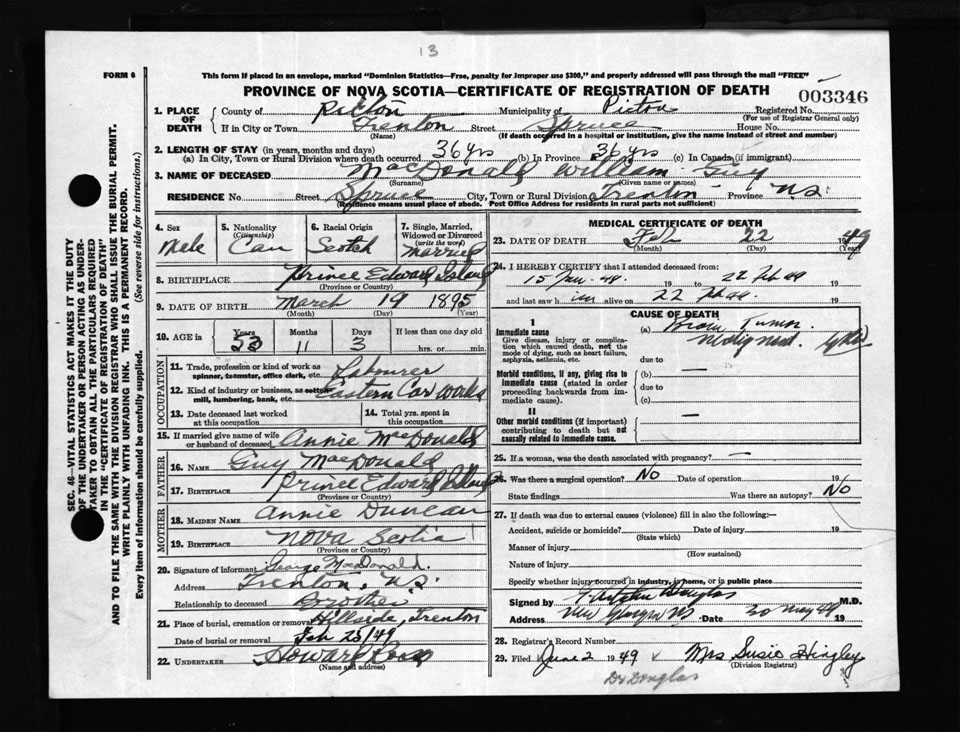 13
FORM 6
This form if placed in an envelope, marked "Dominion Statistics—Free, penalty for improper use $300," and properly addressed will pass through the mail "FREE"
PROVINCE OF NOVA SCOTIA—CERTIFICATE OF REGISTRATION OF DEATH
003346
1. PLACE OF DEATH
County of Pictou Municipality of Pictou Registered No.
(For use of Registrar General only)
If in City or Town Trenton Street Spruce House No.
(Name) (If death occurred in a hospital or institution, give the name instead of street and number)
2. LENGTH OF STAY (in years, months and days)
(a) In City, Town or Rural Division where death occurred 36 yrs (b) In Province 36 yrs (c) In Canada (if immigrant)
3. NAME OF DECEASED MacDonald William Guy
(Surname) (Given name or names)
RESIDENCE No. Street Spruce City, Town or Rural Division Trenton Province N.S.
(Residence means usual place of abode. Post Office Address for residents in rural parts not sufficient)
SEC. 46—VITAL STATISTICS ACT MAKES IT THE DUTY
OF THE UNDERTAKER OR PERSON ACTING AS UNDER-
TAKER TO OBTAIN ALL THE PARTICULARS REQUIRED
IN THE "CERTIFICATE OF REGISTRATION OF DEATH"
AND TO FILE THE SAME WITH THE DIVISION REGISTRAR WHO SHALL ISSUE THE BURIAL PERMIT.
WRITE PLAINLY WITH UNFADING INK. THIS IS A PERMANENT RECORD.
Every item of information should be carefully supplied. (See reverse side for instructions.)
4. Sex
Male
5. Nationality
(Citizenship)
Can
6. Racial Origin
Scotch
7. Single, Married,
Widowed or Divorced
(write the word)
Married
8. BIRTHPLACE Prince Edward Island
(Province or Country)
9. DATE OF BIRTH March 19 1895
(Month) (Day) (Year)
10. AGE in Years Months Days If less than one day old
53 11 3 hrs. or min.
OCCUPATION
11. Trade, profession or kind of work as
spinner, teamster, office clerk, etc. Labourer
12. Kind of industry or business, as cotton
mill, lumbering, bank, etc. Eastern Car Works
13. Date deceased last worked
at this occupation
14. Total yrs. spent in
this occupation
15. If married give name of wife
or husband of deceased Annie MacDonald
FATHER
16. NAME Guy MacDonald
17. BIRTHPLACE Prince Edward Island
(Province or Country)
MOTHER
18. MAIDEN NAME Annie Duncan
19. BIRTHPLACE Nova Scotia
(Province or Country)
20. Signature of informant George MacDonald.
Address Trenton, N.S.
Relationship to deceased Brother
21. Place of burial, cremation or removal Hillside, Trenton
Date of burial or removal Feb 25/49
22. UNDERTAKER Howard Ross
(Name and address)
MEDICAL CERTIFICATE OF DEATH
23. DATE OF DEATH Feb 22 1949
(Month) (Day) (Year)
24. I HEREBY CERTIFY that I attended deceased from:
15 Jan. 49. 19 to 22 Feb 49 19
and last saw him alive on 22 Feb 49. 19
CAUSE OF DEATH
I
Immediate cause
Give disease, injury or complica-
tion which caused death, not the
mode of dying, such as heart failure,
asphyxia, asthenia, etc.
(a) Brain Tumor.
due to
Morbid conditions, if any, giving rise to
immediate cause (stated in order
proceeding backwards from im-
mediate cause).
(b) —
due to
(c)
II
Other morbid conditions (if important)
contributing to death but not
causally related to immediate cause. —
25. If a woman, was the death associated with pregnancy? —
26. Was there a surgical operation? No Date of operation 19
State findings Was there an autopsy? No
27. If death was due to external causes (violence) fill in also the following:—
Accident, suicide or homicide? Date of injury 19
(State which)
Manner of injury
(How sustained)
Nature of injury
Specify whether injury occurred in industry, in home, or in public place
Signed by Douglas M.D.
Address New Glasgow NS Date 30 May 49 19
28. Registrar's Record Number
29. Filed June 2 1949 Mrs Susie Hingley
(Division Registrar)
Dr Douglas